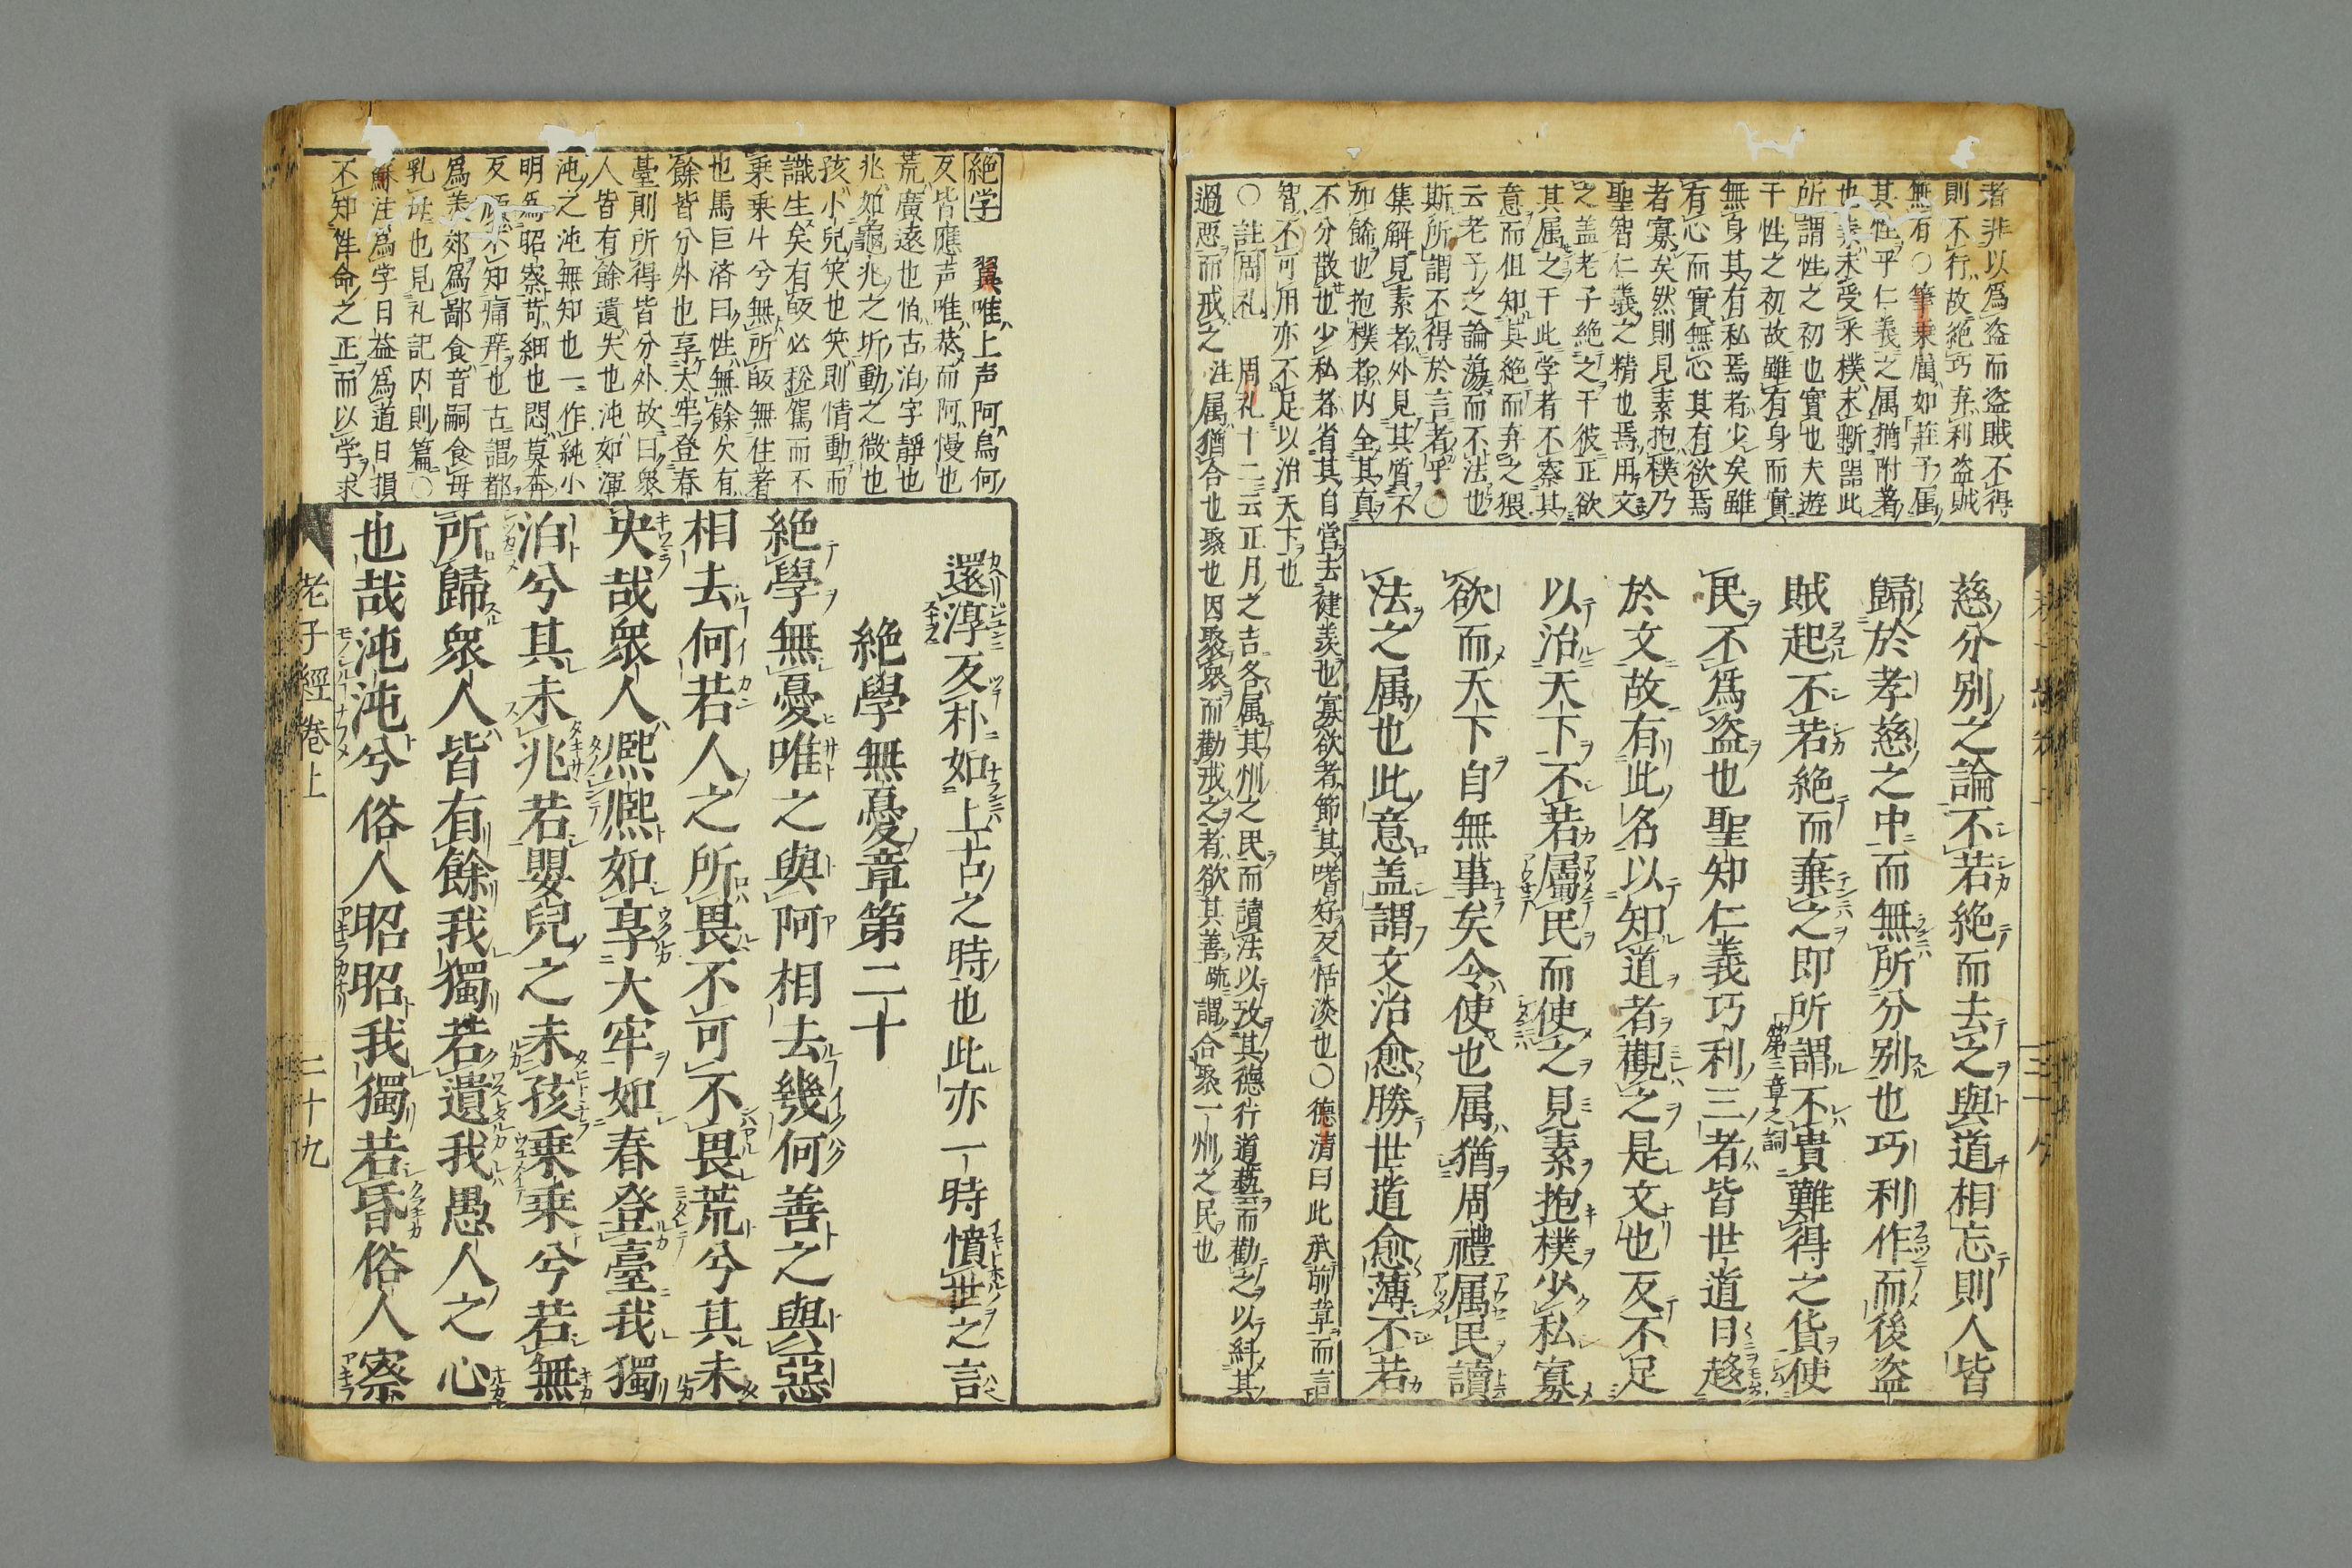 者非以爲盗而盗賊不得
則不行故絶巧弃利盗賊
無有〇筆乗属如莊子属
其性乎仁義之属猶附著
也素未受采樸未斵噐此
所謂性之初也實也夫遊
干性之初故雖有身而實
無身其有私焉者少矣雖
有心而實無心其有欲焉
者寡矣然則見素抱樸乃
聖智仁義之精也焉用文
之盖老子絶之干彼正欲
其属之干此学者不察其
意而但知其絶而弃之猥
云老子之論蕩而不法也
斯所謂不得於言者乎〇
集解見素者外見其質不
加餙也抱樸者内全其真
不分散也少私者省其自營去健羨也寡欲者節其嗜好反恬淡也〇德清曰此承前章而言
智不可用亦不足以治天下也
〇註周礼 周礼十二云正月之吉各属其州之民而讀法以攷其德行道藝而勸之以糾其
過惡而戒之注属猶合也聚也因聚衆而勸戒之者欲其善疏謂合聚一州之民也
慈分别之論不若絶而去之與道相忘則人皆
歸於孝慈之中而無所分别也巧利作而後盗
賊起不若絶而棄之即所謂不貴難得之貨使
第三章之詞
民不爲盗也聖知仁義巧利三者皆世道日趍
於文故有此名以知道者觀之是文也反不足
以治天下不若屬民而使之見素抱樸少私寡
欲而天下自無事矣令使也属猶周禮属民讀
法之属也此意盖謂文治愈勝世道愈薄不若
絶学 翼唯上声阿烏何
反皆應声唯恭而阿慢也
荒廣遠也怕古泊字靜也
兆如龜兆之圻動之微也
孩小兒笑也笑則情動而
識生矣有皈必税駕而不
乗乗牛兮無所皈無住著
也馬巨済曰性無餘欠有
餘皆分外也享太牢登春
臺則所得皆分外故曰衆
人皆有餘遺失也沌如渾
沌之沌無知也一作純小
明爲昭察苛細也悶莫奔
反頑不知痛痒也古謂都
爲美郊爲鄙食音嗣食母
乳母也見礼記内則篇〇
蘇注爲学日益爲道日損
不知性命之正而以学求
還淳反朴如上古之時也此亦一時憤世之言
絶學無憂章第二十
絶學無憂唯之與阿相去幾何善之與惡
相去何若人之所畏不可不畏荒兮其未
央哉衆人熈熈如享大牢如春登臺我獨
泊兮其未兆若嬰兒之未孩乗乗兮若無
所歸衆人皆有餘我獨若遺我愚人之心
也哉沌沌兮俗人昭昭我獨若昏俗人察
老子經卷上 二十九